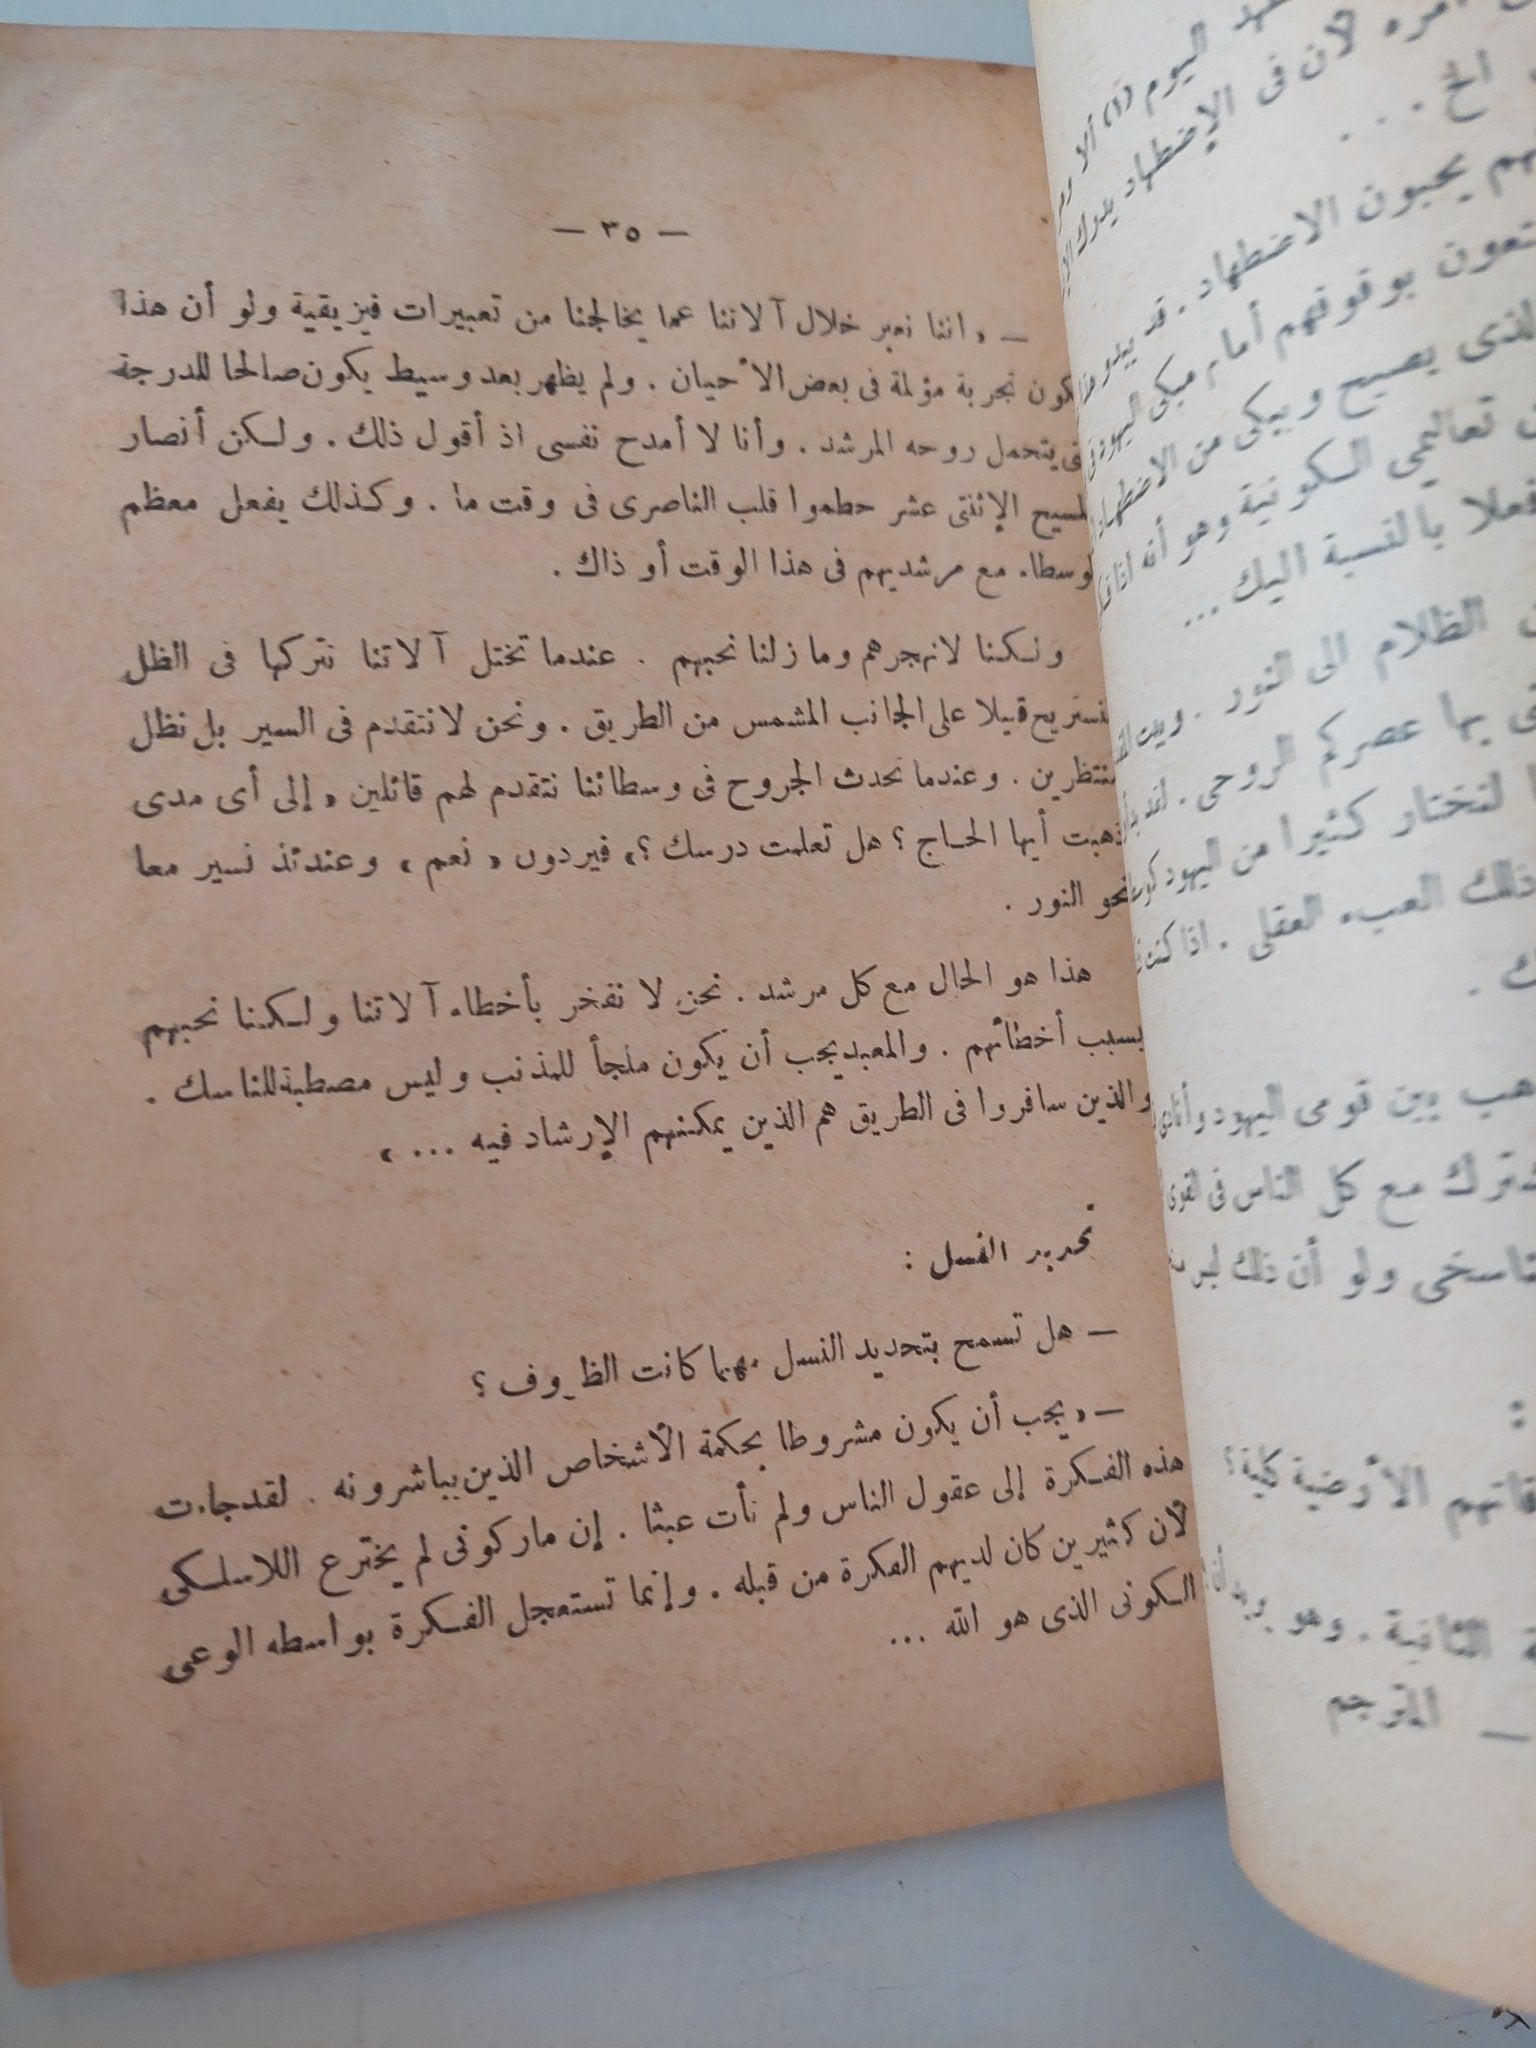 — ٣٥ —
— « اننا نعبر خلال آلاتنا عما يخالجنا من تعبيرات فيزيقية ولو أن هذا
يكون تجربة مؤلمة فى بعض الأحيان . ولم يظهر بعد وسيط يكون صالحا للدرجة
يتحمل روحه المرشد . وأنا لا أمدح نفسى اذ أقول ذلك . ولكن أنصار
المسيح الإثنتى عشر حطموا قلب الناصرى فى وقت ما . وكذلك يفعل معظم
الوسطاء مع مرشديهم فى هذا الوقت أو ذاك .
ولكننا لا نهجرهم وما زلنا نحبهم . عندما تختل آلاتنا نتركها فى الظل
لنستريح قليلا على الجانب المشمس من الطريق . ونحن لا نتقدم فى السير بل نظل
منتظرين . وعندما تحدث الجروح فى وسطائنا نتقدم لهم قائلين « إلى أى مدى
ذهبت أيها الحاج ؟ هل تعلمت درسك ؟ » فيردون « نعم » وعندئذ نسير معا
نحو النور .
هذا هو الحال مع كل مرشد . نحن لا نفخر بأخطاء آلاتنا ولكننا نحبهم
بسبب أخطائهم . والمعبد يجب أن يكون ملجأ للمذنب وليس مصطبة للناسك .
والذين سافروا فى الطريق هم الذين يمكنهم الإرشاد فيه ... »
تحديد النسل :
— هل تسمح بتحديد النسل مهما كانت الظروف ؟
— « يجب أن يكون مشروطا بحكمة الأشخاص الذين يباشرونه . لقد جاءت
هذه الفكرة إلى عقول الناس ولم تأت عبثا . إن ماركونى لم يخترع اللاسلكى
لأن كثيرين كان لديهم الفكرة من قبله . وإنما تستعجل الفكرة بواسطه الوعى
الكونى الذى هو الله ...
اليوم (١) ألا
أمره لأن فى الإضطهاد يدرك
الخ . . .
يحبون الاضطهاد . قد يبدو
بوقوفهم أمام مبكى اليهود
الذى يصيح ويبكى من الاضطهاد
تعاليمى الكونية وهو أنه اذا
فعلا بالنسبة اليك ...
الظلام الى النور .
بها عصركم الروحى . لقد
لتختار كثيرا من اليهود
ذلك العبء العقلى . اذا كنت
بين قومى اليهود
مع كل الناس فى القوى
ولو أن ذلك ليس
:
الأرضية كلية ؟
الثانية . وهو
— المترجم